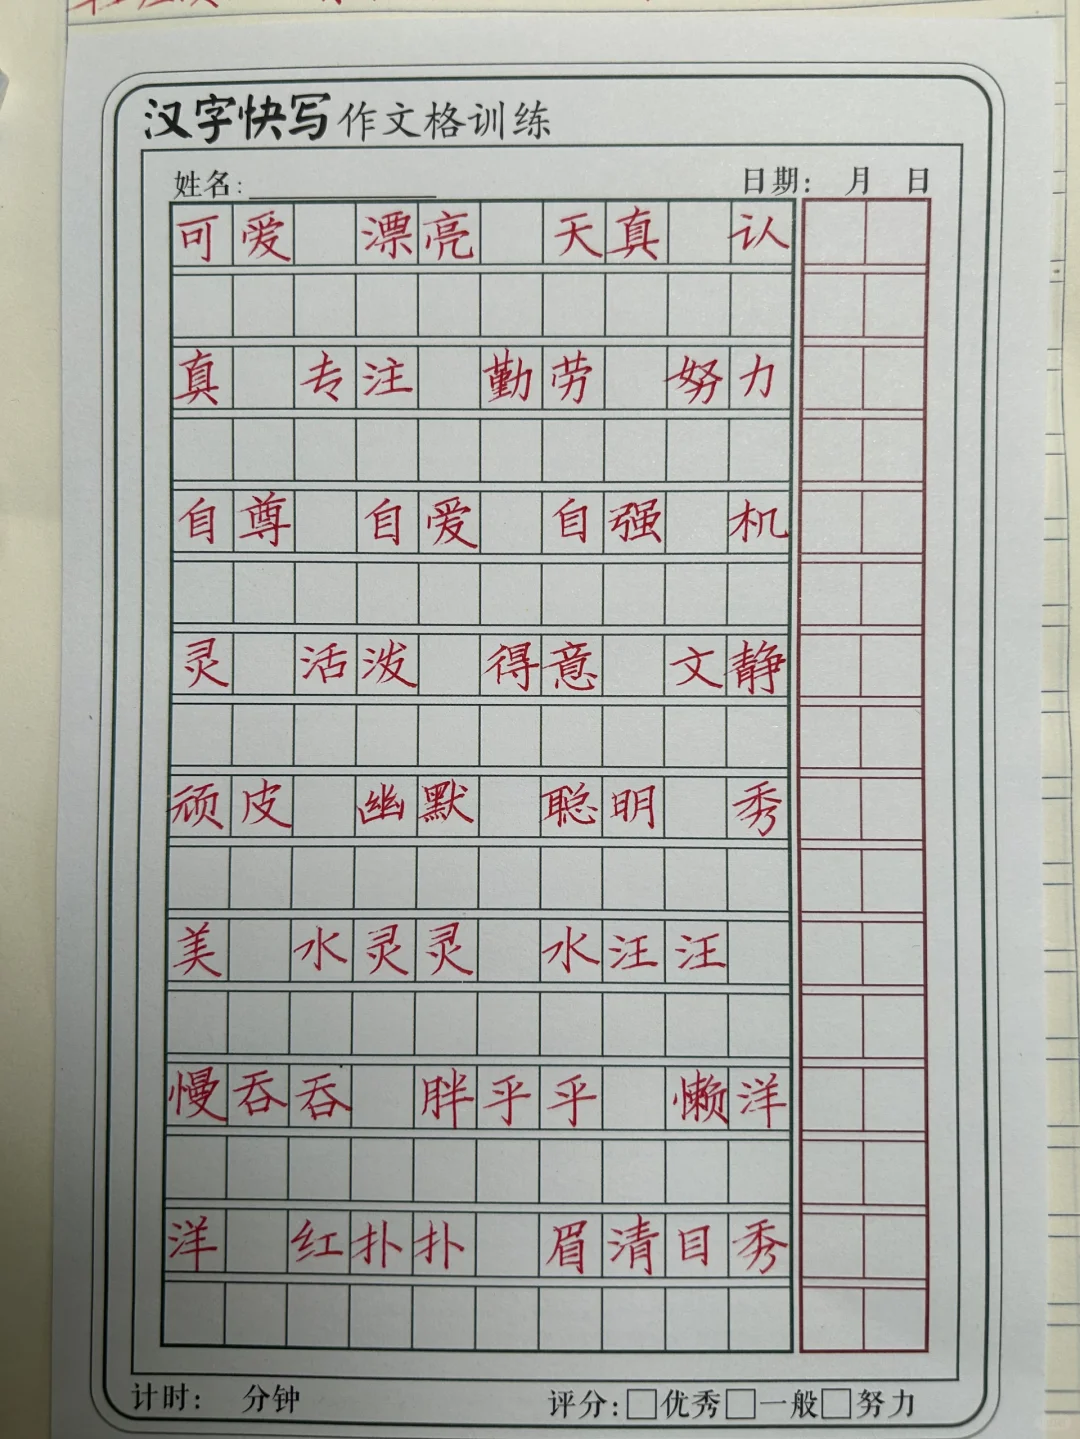 汉字快写作文格训练
姓名: 日期: 月 日
可爱 漂亮 天真 认
真 专注 勤劳 努力
自尊 自爱 自强 机
灵 活泼 得意 文静
顽皮 幽默 聪明 秀
美 水灵灵 水汪汪
慢吞吞 胖乎乎 懒洋
洋 红扑扑 眉清目秀
计时: 分钟 评分:□优秀□一般□努力